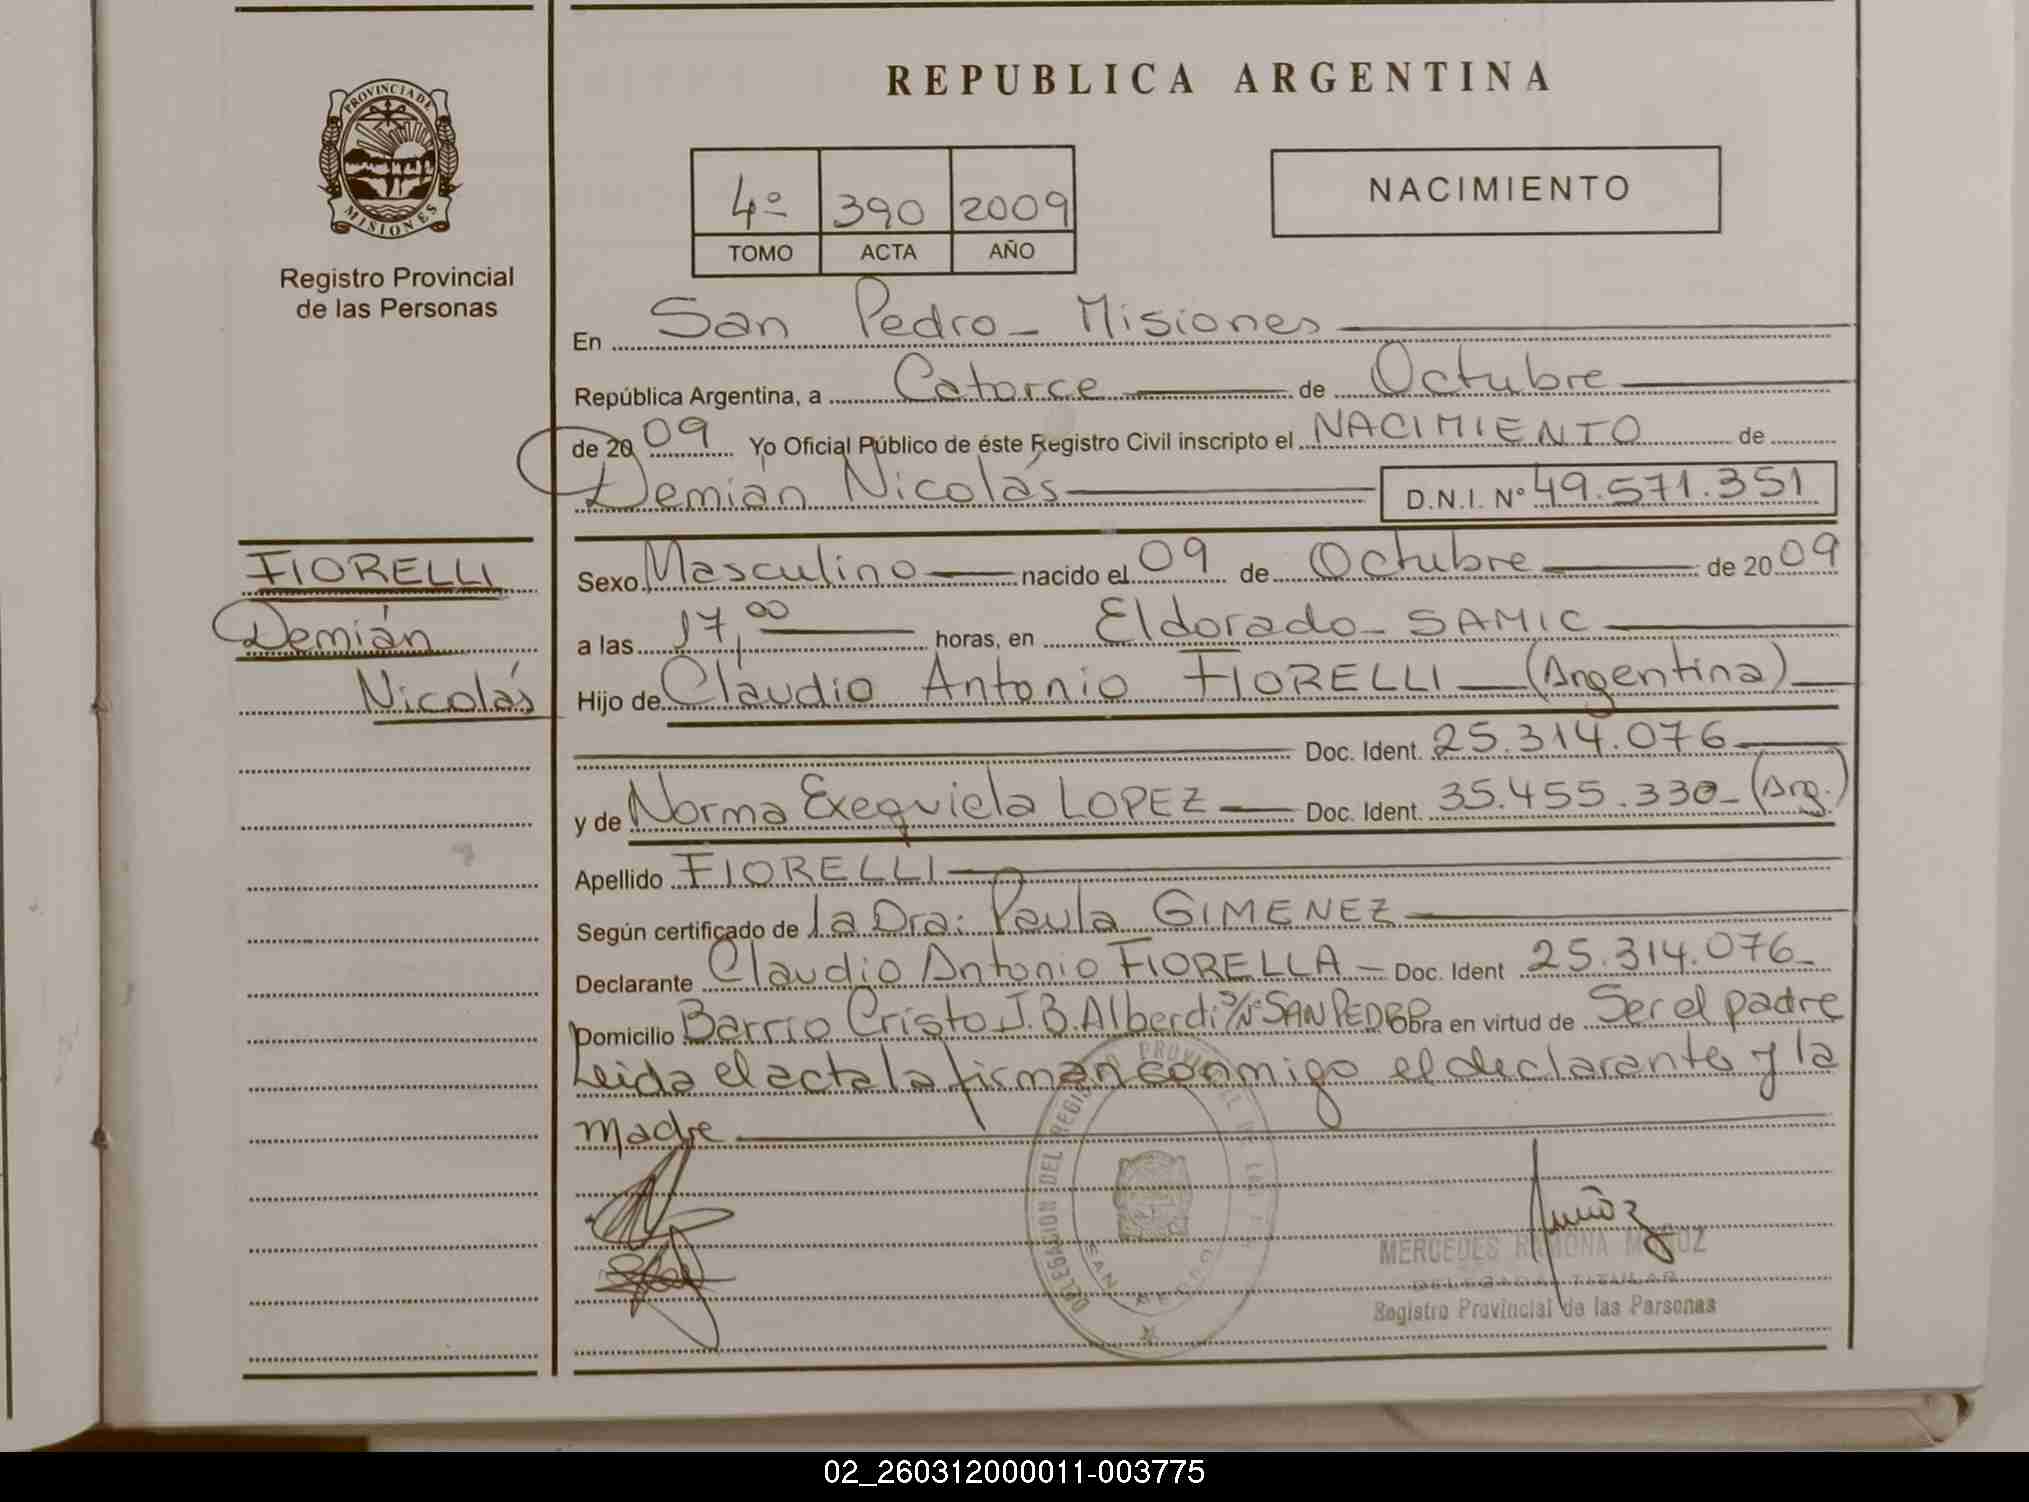 REPUBLICA ARGENTINA
PROVINCIA DE
MISIONES
Registro Provincial
de las Personas
4º 390 2009
TOMO ACTA AÑO
NACIMIENTO
En San Pedro - Misiones
República Argentina, a Catorce de Octubre
de 2009 Yo Oficial Público de éste Registro Civil inscripto el NACIMIENTO de
Demián Nicolás D.N.I. Nº 49.571.351
FIORELLI
Demián
Nicolás
Sexo Masculino nacido el 09 de Octubre de 2009
a las 17,00 horas, en Eldorado - SAMIC
Hijo de Claudio Antonio FIORELLI (Argentina)
Doc. Ident. 25.314.076
y de Norma Exequiela LOPEZ Doc. Ident. 35.455.330 - (Arg.)
Apellido FIORELLI
Según certificado de la Dra. Paula GIMENEZ
Declarante Claudio Antonio FIORELLA - Doc. Ident 25.314.076
Domicilio Barrio Cristo J.B. Alberdi S/Nº SAN PEDRO Obra en virtud de Ser el padre
Leida el acta la firman conmigo el declarante y la
madre
DELEGACION DEL REGISTRO PROVINCIAL DE LAS
SAN PEDRO
Muñoz
MERCEDES RAMONA MUÑOZ
DELEGADA TITULAR
Registro Provincial de las Personas
02_260312000011-003775